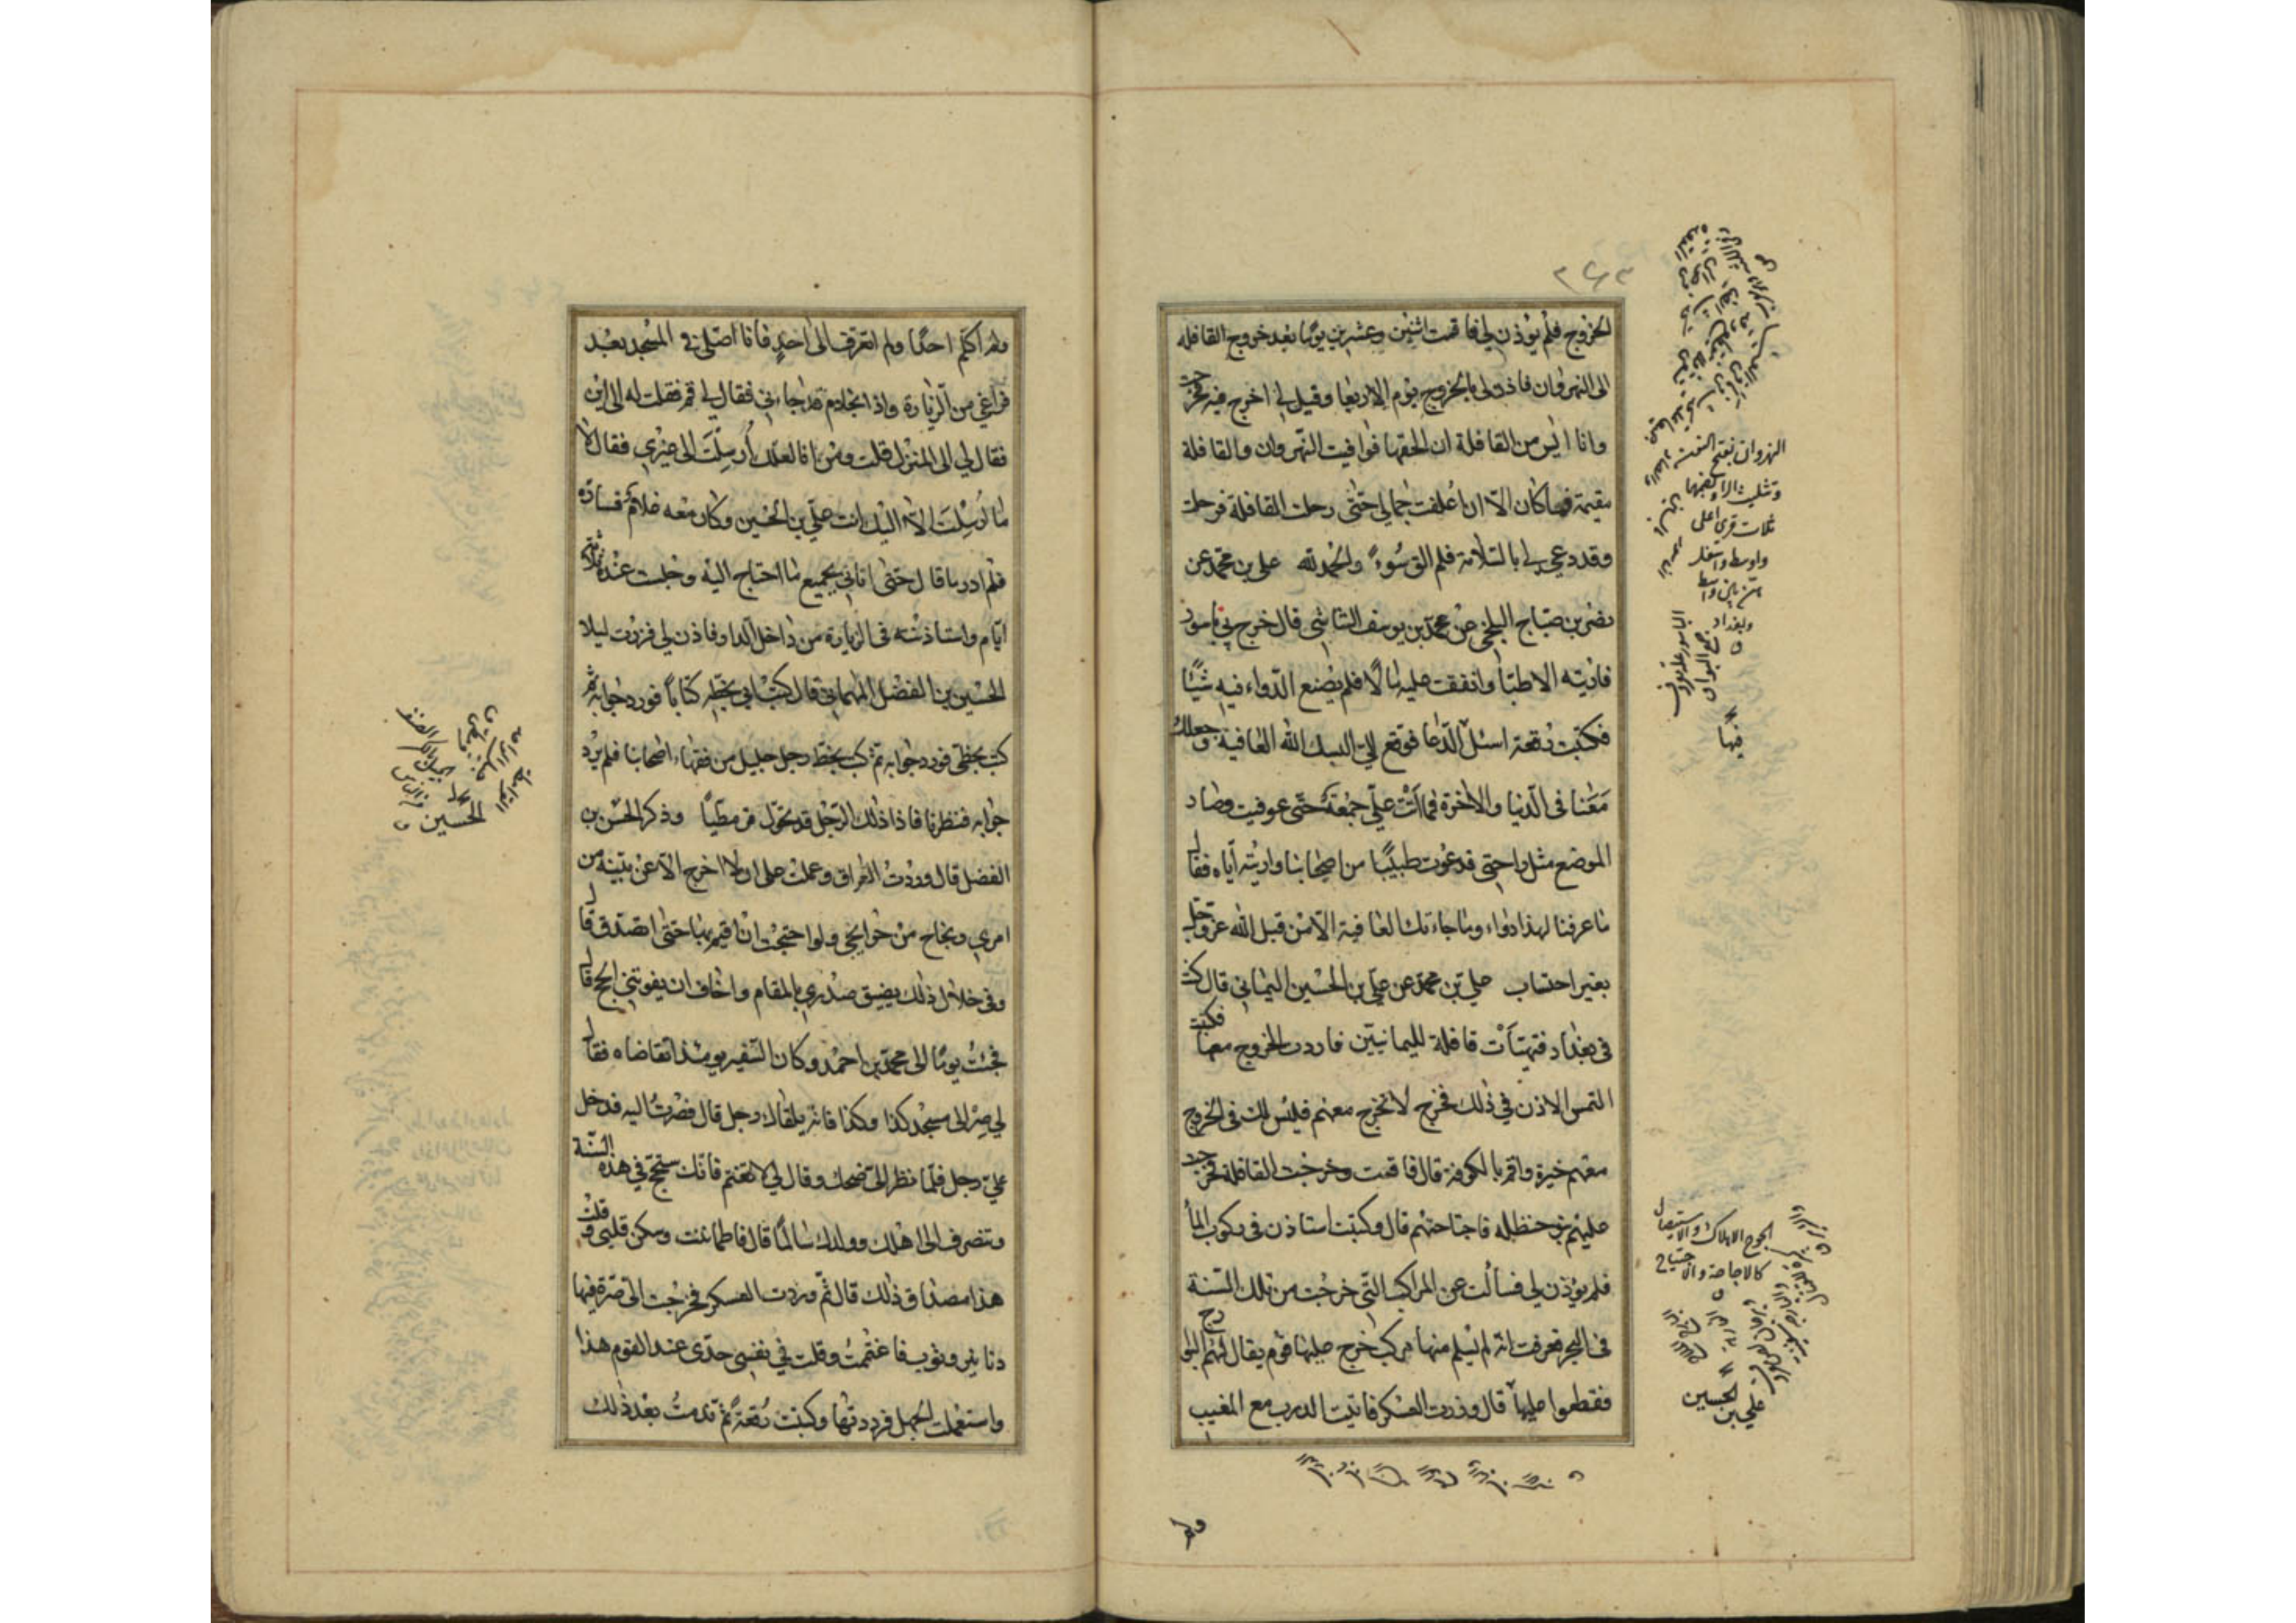 ۲۶۳
الخروج فلم يؤذن لي فاقمت اثنين وعشرين يومًا بعد خروج القافله
الى النهروان فاذن لي بالخروج يوم الاربعا وقيل لي اخرج فيه فخرجت
وانا ايس من القافلة ان الحقها فوافيت النهروان والقافلة
مقيمة فما كان الّا ان اعلفت جمالي حتى رحلت القافلة فرحلت
وقد دعي لي بالسّلامة فلم الق سُوءً والحمد لله علي بن محمّد عن
نضر بن صباح البلخي عن محمّد بن يوسف الشاشي قال خرج بي ناسور
فاريته الاطبّا وانفقت عليه مالًا فلم يصنع الدّواء فيه شيئًا
فكتبت رقعة اسئل الدّعا فوقع لي البسك الله العافية وجعلك
مَعَنا في الدّنيا والاخرة فما اتت عليّ جمعة حتّى عوفيت وصار
الموضع مثل راحتي فدعوت طبيبًا من اصحابنا واريته ايّاه فقال
ما عرفنا لهذا دواء وما جاءتك العافية الّا من قبل الله عزّ وجلّ
بغير احتساب علي بن محمّد عن علي بن الحسين اليماني قال كنت
في بغداد فتهيّأت قافلة لليمانيّين فاردت الخروج معها فكتبت
التمس الاذن في ذلك فخرج لا تخرج معهم فليس لك في الخروج
معهم خيرة واقم بالكوفة قال فاقمت وخرجت القافلة فخرجت
عليهم بنو حنظله فاجتاحتهم قال وكتبت استاذن في ركوب الماء
فلم يؤذن لي فسألت عن المراكب التّي خرجت من تلك السّنة
في البحر فعرفت انّه لم يسلم منها مركب خرج عليها قوم يقال لهم البوارج
فقطعوا عليها قال وزرت العسكر فاتيت الدرب مع المغيب
ولم
النهروان بفتح النون
وتثليث الراء وبضمها
ثلاث قرى اعلى
واوسط واسفل
هنّ بين واسط
وبغداد
الجوح الاهلاك والاستيصال
كالاجاحة والاجتياح
علي بن الحسين
ولم اكلّم احدًا ولم اتعرّف الى احدٍ فانا اصلّي في المسجد بعد
فراغي من الزيارة واذا بخادم قد جاءني فقال لي قم فقلت له الى اين
فقال لي الى المنزل قلت ومن انا لعلّك أُرسِلتَ الى غيري فقال لا
ما أُرسِلتَ الّا اليك انت علي بن الحسين وكان معه غلام فسارّه
فلم ادر ما قال حتى اتاني بجميع ما احتاج اليه وجلست عنده ثلاثة
ايّام واستاذنته في الزيارة من داخل الدار فاذن لي فزرت ليلا
الحسين بن الفضل الهماني قال كتب ابي بخطّه كتاباً فورد جوابه ثمّ
كتب بخطّي فورد جوابه ثمّ كتب بخطّ رجل جليل من فقهاء اصحابنا فلم يرد
جوابه فنظرنا فاذا ذلك الرّجل قد تحوّل قرمطيًا وذكر الحسن بن
الفضل قال وردت العراق وعملت على ان لا اخرج الّا عن بيّنة من
امري ونجاح من حوايجي ولو احتجت ان اقيم بها حتى اتصدق قال
وفي خلال ذلك يضيق صدري بالمقام واخاف ان يفوتني الحج قال
فجئت يومًا الى محمّد بن احمد وكان السّفير يومئذ اتقاضاه فقال
لي صر الى مسجد كذا وكذا فانه يلقاك رجل قال فصرت اليه فدخل
عليّ رجل فلمّا نظر الىّ ضحك وقال لي لا تغتم فانّك ستحج في هذه السّنة
وتنصرف الى اهلك وولدك سالمًا قال فاطماننت وسكن قلبي وقلت
هذا مصداق ذلك قال ثمّ وردت العسكر فخرجت الىّ صرّة فيها
دنانير وثوب فاغتممت وقلت في نفسي جدّي عند القوم هذا
واستعملت الجهل فرددتها وكتبت رقعة ثمّ ندمت بعد ذلك
الحسين